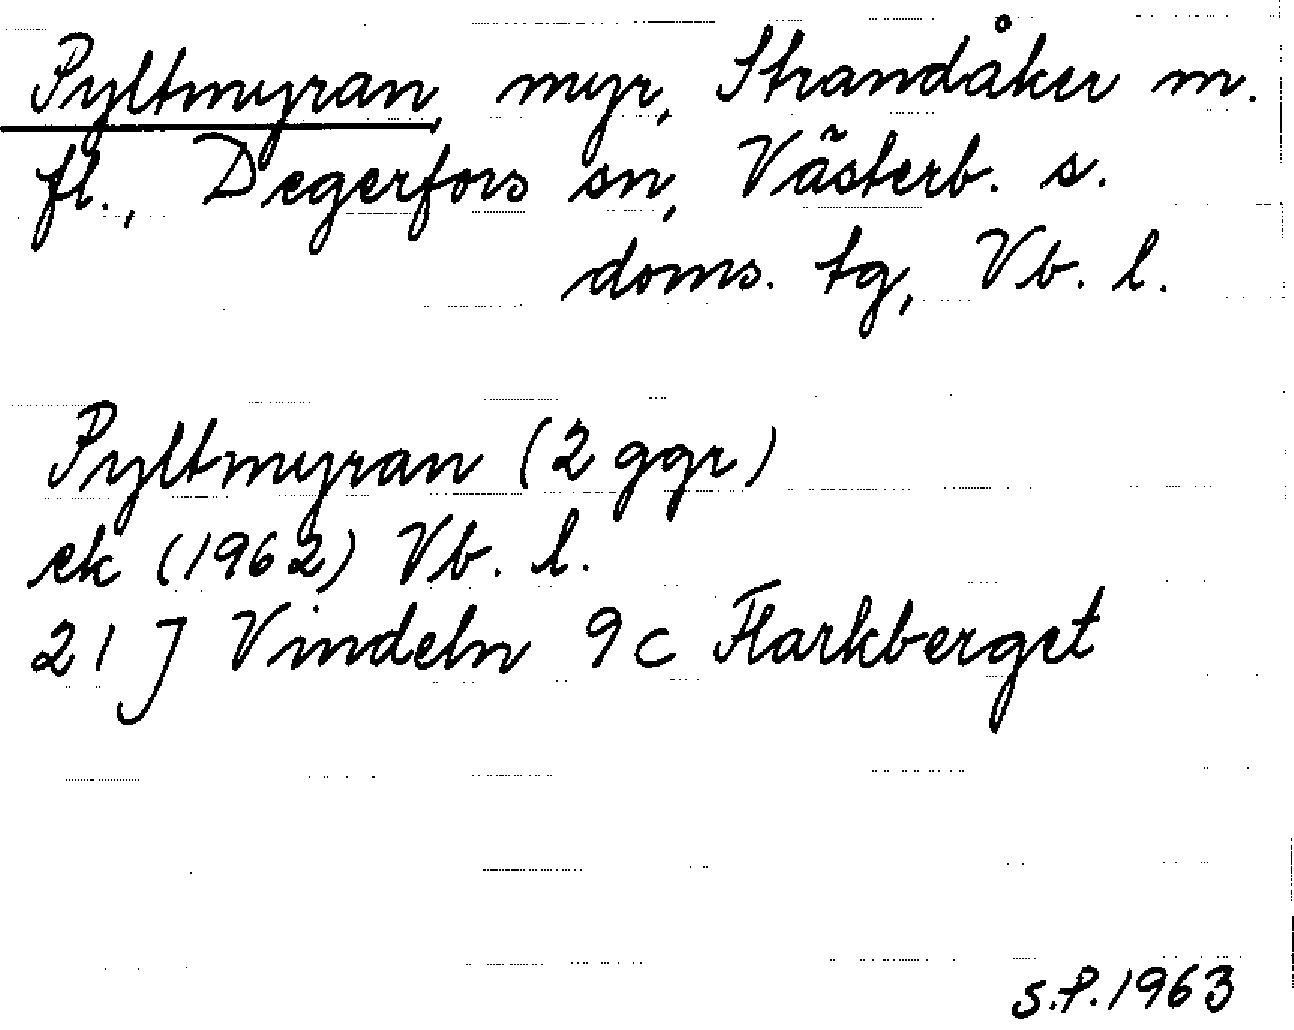 Pyltmyran, myr, Strandåker m.
fl., Degerfors sn, Västerb. s.
doms. tg, Vb. l.
Pyltmyran (2 ggr)
ek (1962) Vb. l.
21 J Vindeln 9c Flarkberget
S.P. 1963